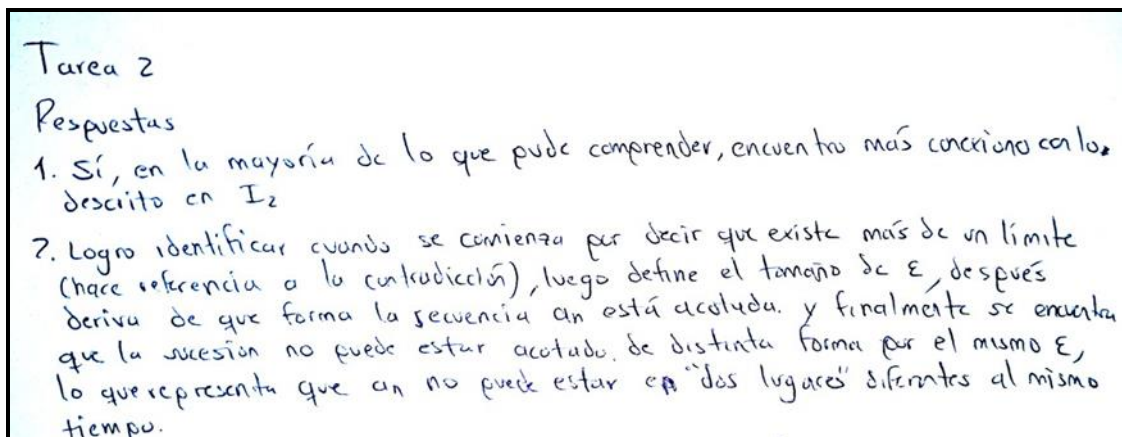 Tarea 2
Respuestas
1. Sí, en la mayoría de lo que pude comprender, encuentro más conexiono con lo.
descrito en I₂
2. Logro identificar cuando se comienza por decir que existe más de un límite
(hace referencia a la contradicción), luego define el tamaño de ε, después
deriva de que forma la secuencia an está acotada. y finalmente se encuentra
que la sucesión no puede estar acotado. de distinta forma por el mismo ε,
lo que representa que an no puede estar en "dos lugares" diferentes al mismo
tiempo.